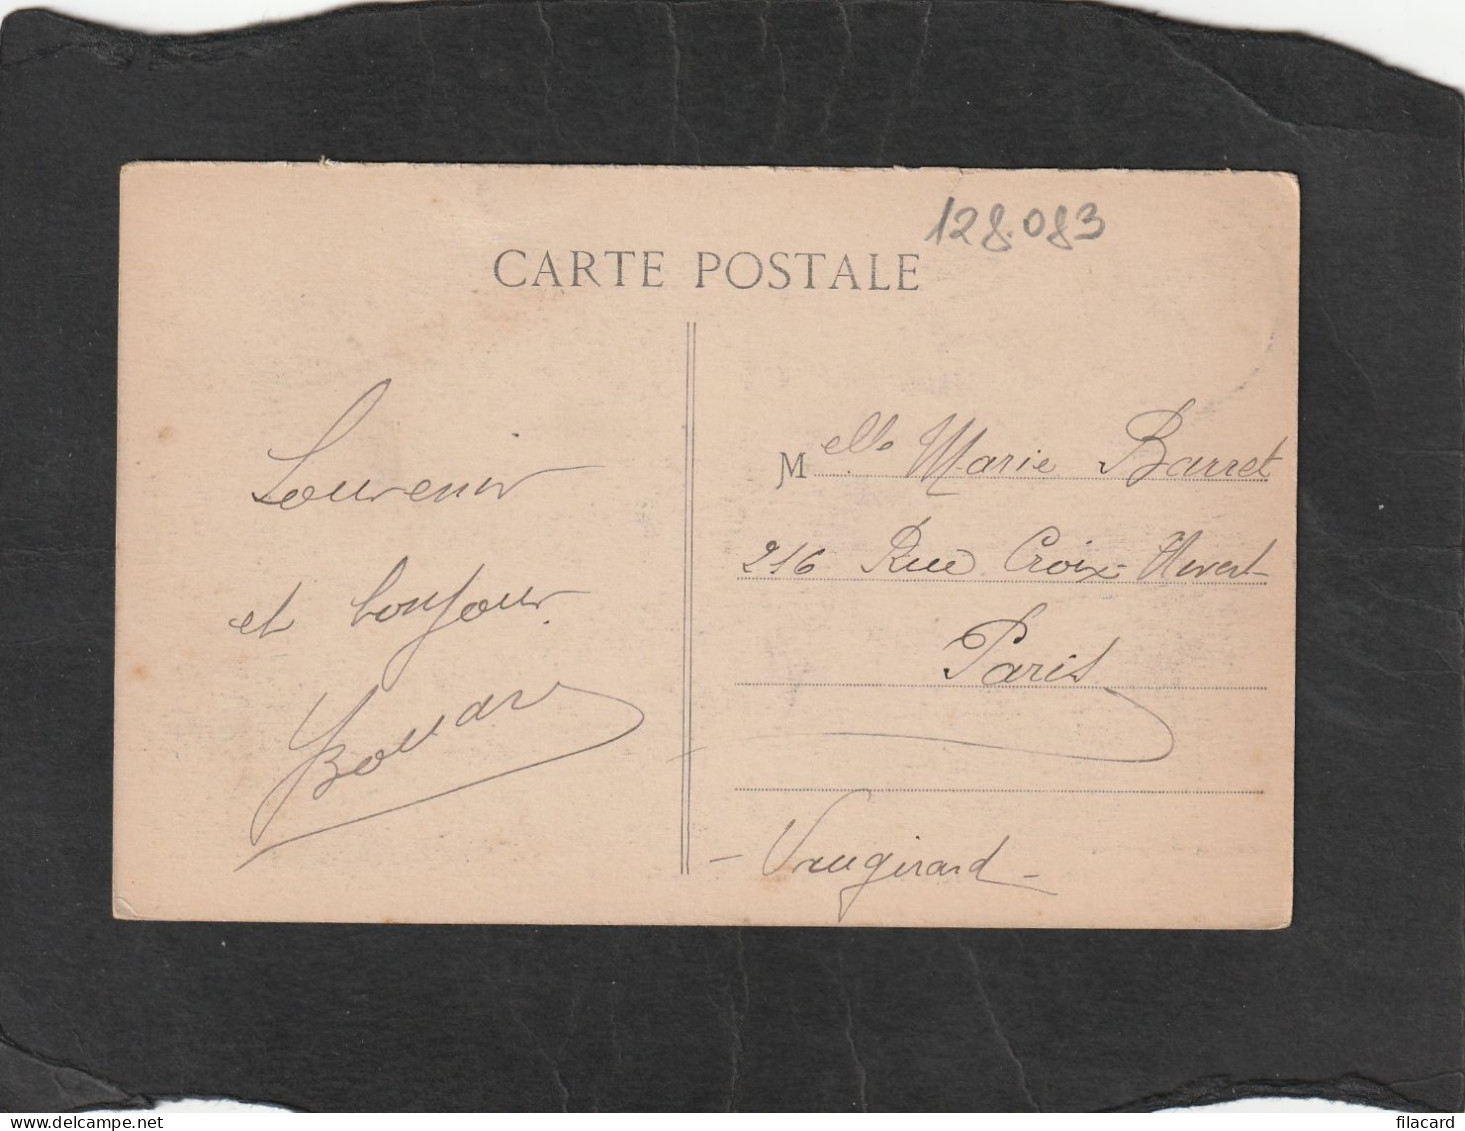 128.083
CARTE POSTALE
Souvenir
et bonjour
Melle Marie Barret
216 Rue Croix-Nivert
Paris
- Vaugirard -
filacard